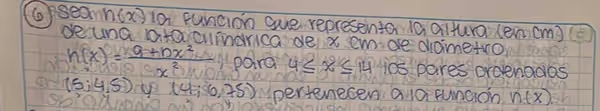 6 sea h(x) la función que representa la altura (en cm)
de una lata cilíndrica de x cm de diámetro,
h(x) = a+bx² / x² , para 4 ≤ x ≤ 14 los pares ordenados
(5;4,5) y (4; 6,75) pertenecen a la función h(x).